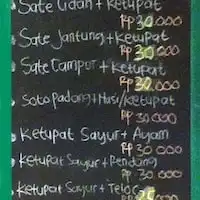 Sate Lidah + Ketupat
Rp 30.000
Sate Jantung + Ketupat
Rp 30.000
Sate Campur + Ketupat
Rp 30.000
Soto Padang + Nasi/Ketupat
Rp 30.000
Ketupat Sayur + Ayam
Rp 30.000
Ketupat Sayur + Rendang
Rp 30.000
Ketupat Sayur + Telor
Rp 25.000